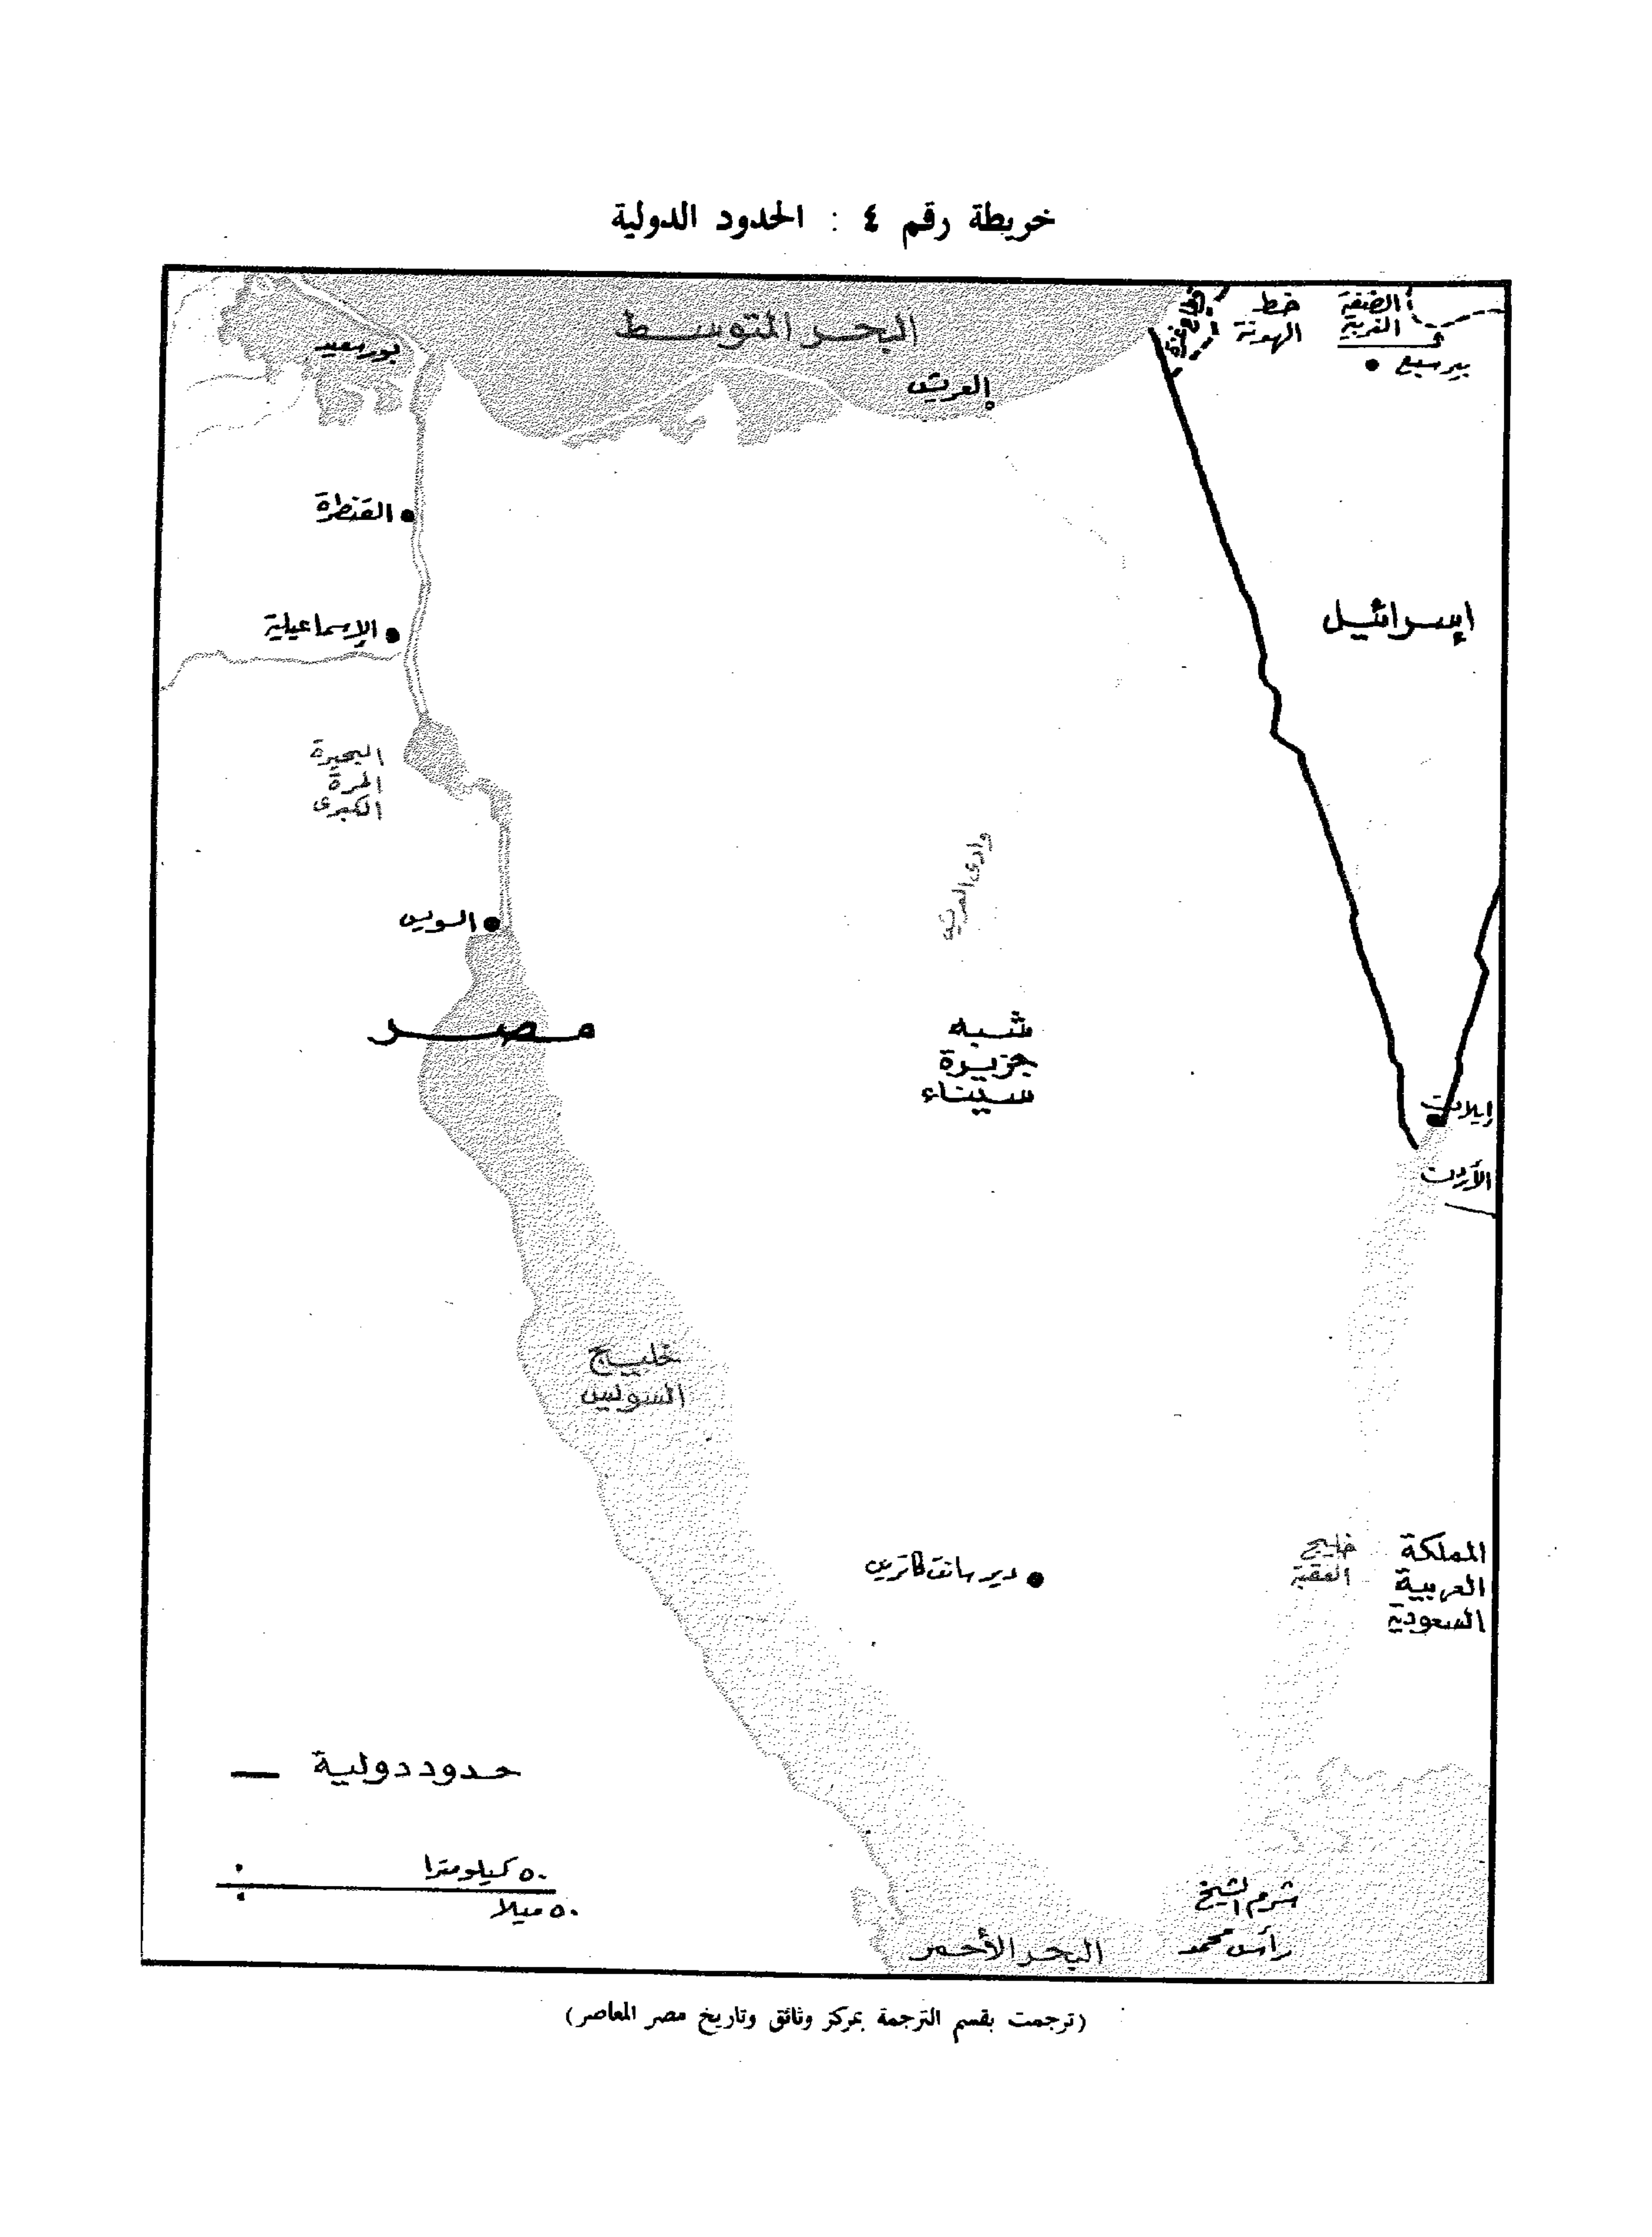 خريطة رقم ٤ : الحدود الدولية
البحر المتوسط
قطاع غزة
خط
الهدنة
الضفة
الغربية
بير سبع
بورسعيد
العريش
القنطرة
الإسماعيلية
إسرائيل
البحيرة
المرة
الكبرى
وادى العريش
السويس
مصر
شبه
جزيرة
سيناء
إيلات
الأردن
خليج
السويس
دير سانت كاترين
خليج
العقبة
المملكة
العربية
السعودية
حدود دولية
٥٠ كيلومترا
٥٠ ميلا
شرم الشيخ
رأس محمد
البحر الأحمر
(ترجمت بقسم الترجمة بمركز وثائق وتاريخ مصر المعاصر)